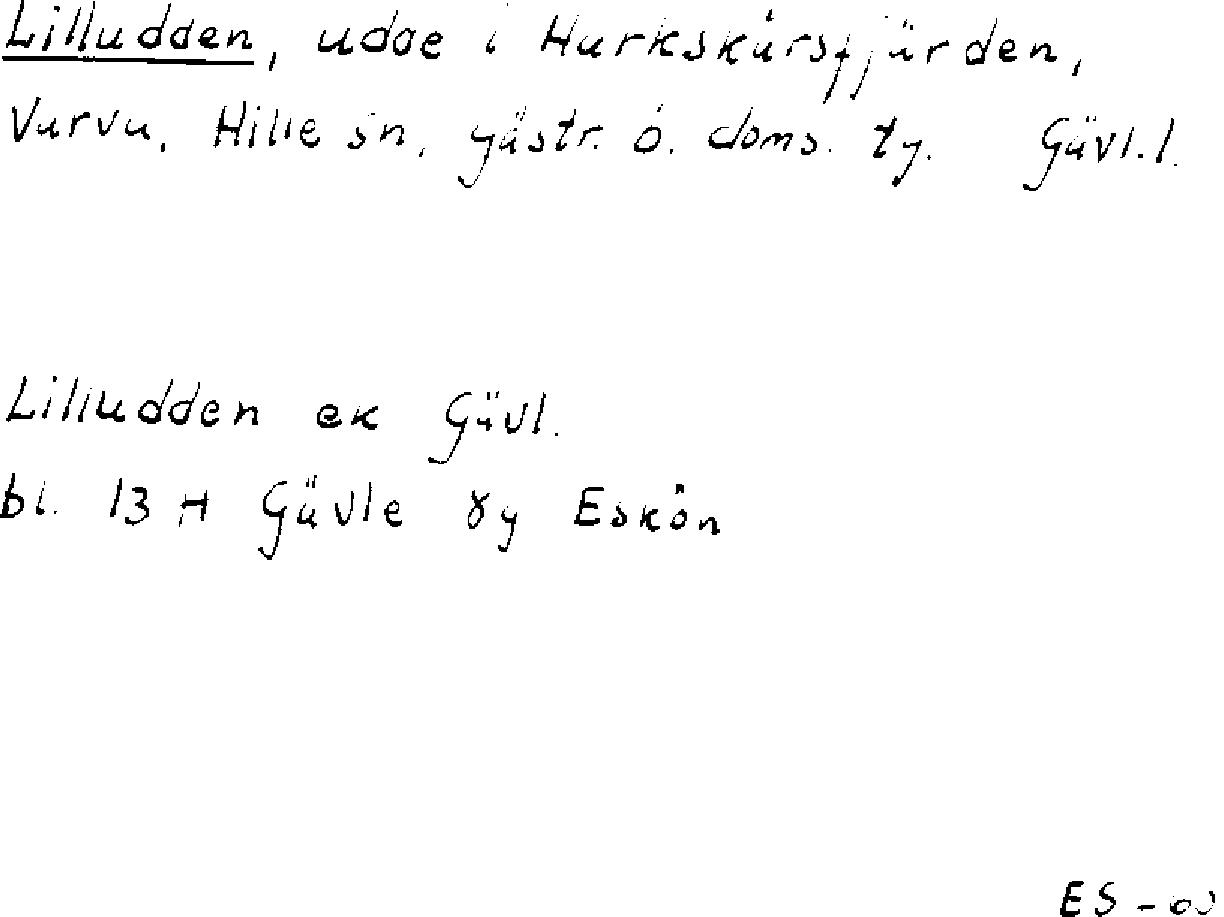 Lilludden, udde i Harkskärsfjärden,
Varva, Hille sn, gästr. ö. doms. tg. Gävl.l.
Lilludden ek Gävl.
bl. 13 H Gävle 8g Eskön
ES -